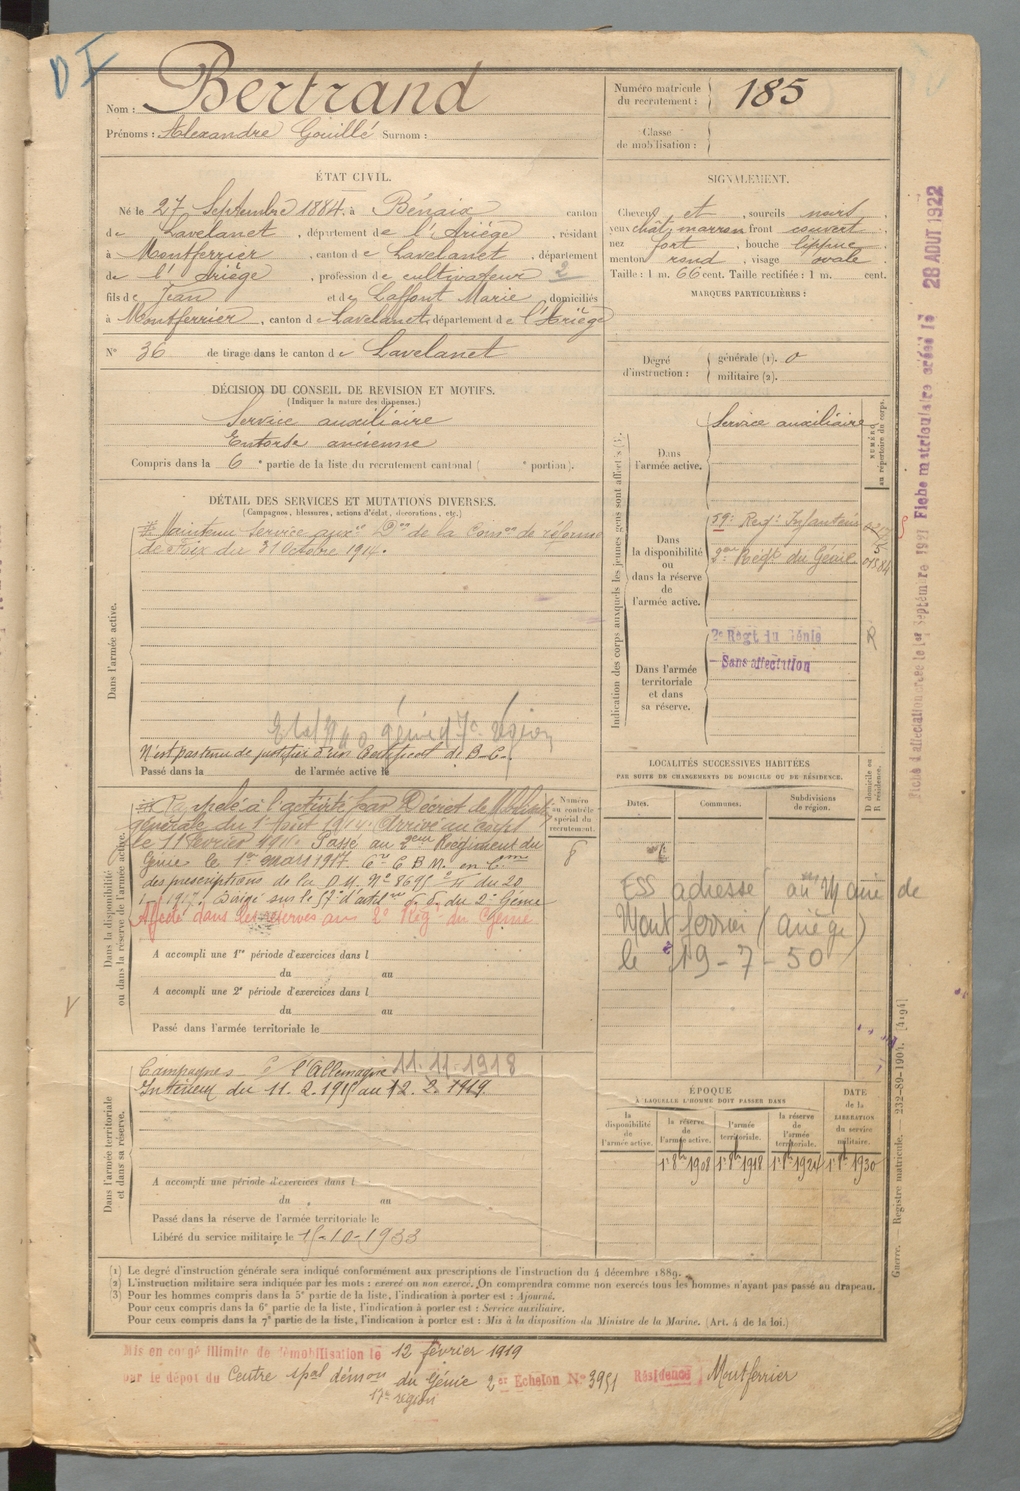 D I
Nom : Bertrand
Prénoms : Alexandre Gouillé Surnom :
Numéro matricule
du recrutement : 185
Classe
de mobilisation :
ÉTAT CIVIL.
Né le 27 Septembre 1884. à Bénaix canton
de Lavelanet , département de l'Ariège , résidant
à Montferrier , canton de Lavelanet , département
de l'Ariège , profession de cultivateur 2
fils de Jean et de Laffont Marie , domiciliés
à Montferrier , canton de Lavelanet, département de l'Ariège
N° 36 de tirage dans le canton de Lavelanet
SIGNALEMENT.
Cheveux et , sourcils noirs ,
yeux chât. marron front couvert ,
nez fort , bouche lippue ,
menton rond , visage ovale
Taille : 1 m. 66 cent. Taille rectifiée : 1 m. cent.
MARQUES PARTICULIÈRES :
Degré
d'instruction : générale (1). 0
militaire (2).
DÉCISION DU CONSEIL DE REVISION ET MOTIFS.
(Indiquer la nature des dispenses.)
Service auxiliaire
Entorse ancienne
Compris dans la 6e partie de la liste du recrutement cantonal ( e portion).
DÉTAIL DES SERVICES ET MUTATIONS DIVERSES.
(Campagnes, blessures, actions d'éclat, décorations, etc.)
Dans l'armée active.
Maintenu Service auxre Don de la Comon de réforme
de Foix du 31 Octobre 1914.
génie 17e région
N'est pas tenu de justifier d'un Certificat de B.C.
Passé dans la de l'armée active le
Indication des corps auxquels les jeunes gens sont affectés (3).
NUMÉRO
au répertoire du corps.
Dans
l'armée active.
Service auxiliaire
Dans
la disponibilité
ou
dans la réserve
de
l'armée active.
59e Regt Infanterie
2me Régt du Génie
Dans l'armée
territoriale
et dans
sa réserve.
2e Régt du Génie
Sans affectation
R
Dans la disponibilité
ou dans la réserve de l'armée active.
Rappelé à l'activité par Décret de Mobilisation
générale du 1er Août 1914. Arrivé au corps
le 11 Février 1915. Passé au 2eme Regiment du
Génie le 1er mars 1917.
des prescriptions de la D.M. N° 8695 du 20
Dirigé sur le 57e d'artil du 2e Génie
Affecté dans les réserves au 2e Rég. du Génie
Numéro
au contrôle
spécial du
recrutement.
A accompli une 1re période d'exercices dans l
du au
A accompli une 2e période d'exercices dans l
du au
Passé dans l'armée territoriale le
LOCALITÉS SUCCESSIVES HABITÉES
PAR SUITE DE CHANGEMENTS DE DOMICILE OU DE RÉSIDENCE.
Dates. Communes. Subdivisions
de région.
D domicile ou
R résidence.
ESS adressé au Maire de
Montferrier (Ariège)
le 19-7-50
Dans l'armée territoriale
et dans sa réserve.
Campagnes C l'Allemagne 11.11.1918
Intérieur du 11.2.1915 au 12.2.1919.
A accompli une période d'exercices dans l
du au
Passé dans la réserve de l'armée territoriale le
Libéré du service militaire le 15-10-1933
ÉPOQUE
À LAQUELLE L'HOMME DOIT PASSER DANS
la
disponibilité
de
l'armée active.
la réserve
de
l'armée active.
l'armée
territoriale.
la réserve
de
l'armée
territoriale.
DATE
de la
LIBÉRATION
du service
militaire.
1er 8bre 1908 1er 8bre 1918 1er 8bre 1924 1er 8bre 1930
(1) Le degré d'instruction générale sera indiqué conformément aux prescriptions de l'instruction du 4 décembre 1889.
(2) L'instruction militaire sera indiquée par les mots : exercé ou non exercé. On comprendra comme non exercés tous les hommes n'ayant pas passé au drapeau.
(3) Pour les hommes compris dans la 5e partie de la liste, l'indication à porter est : Ajourné.
Pour ceux compris dans la 6e partie de la liste, l'indication à porter est : Service auxiliaire.
Pour ceux compris dans la 7e partie de la liste, l'indication à porter est : Mis à la disposition du Ministre de la Marine. (Art. 4 de la loi.)
Mis en congé illimité de démobilisation le 12 février 1919
par le dépôt du Centre spal démon du Génie 2er Echelon N° 3951 Résidence Montferrier
17e région
Guerre. — Registre matricule. — 232-89-1904. [4194]
Fiche d'affectation créée le 1er Septembre 1921 Fiche matriculaire créée le 28 AOUT 1922